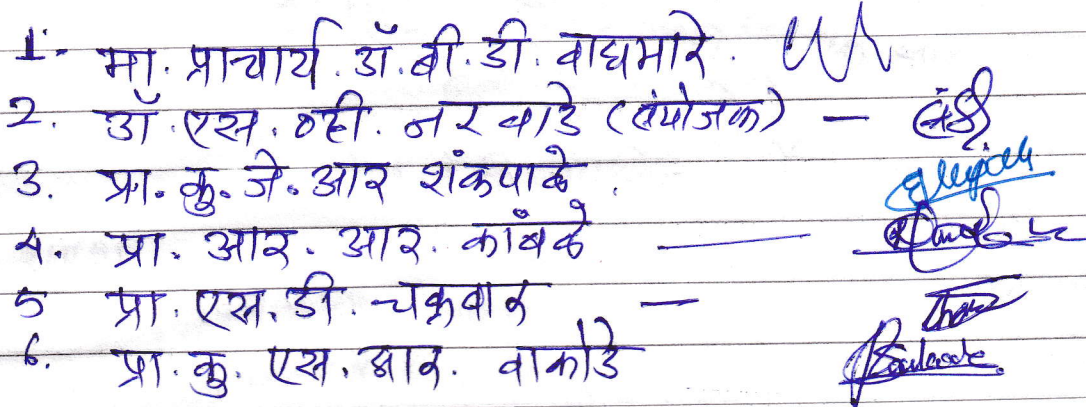 1. मा. प्राचार्य. डॉ. बी. डी. वाघमारे.
2. डॉ. एस. व्ही. नरवाडे (संयोजक) —
3. प्रा. कु. जे. आर शंकपाळे.
4. प्रा. आर. आर. कांबळे —
5 प्रा. एस. डी. चक्रवार —
6. प्रा. कु. एस. आर. वाकोडे